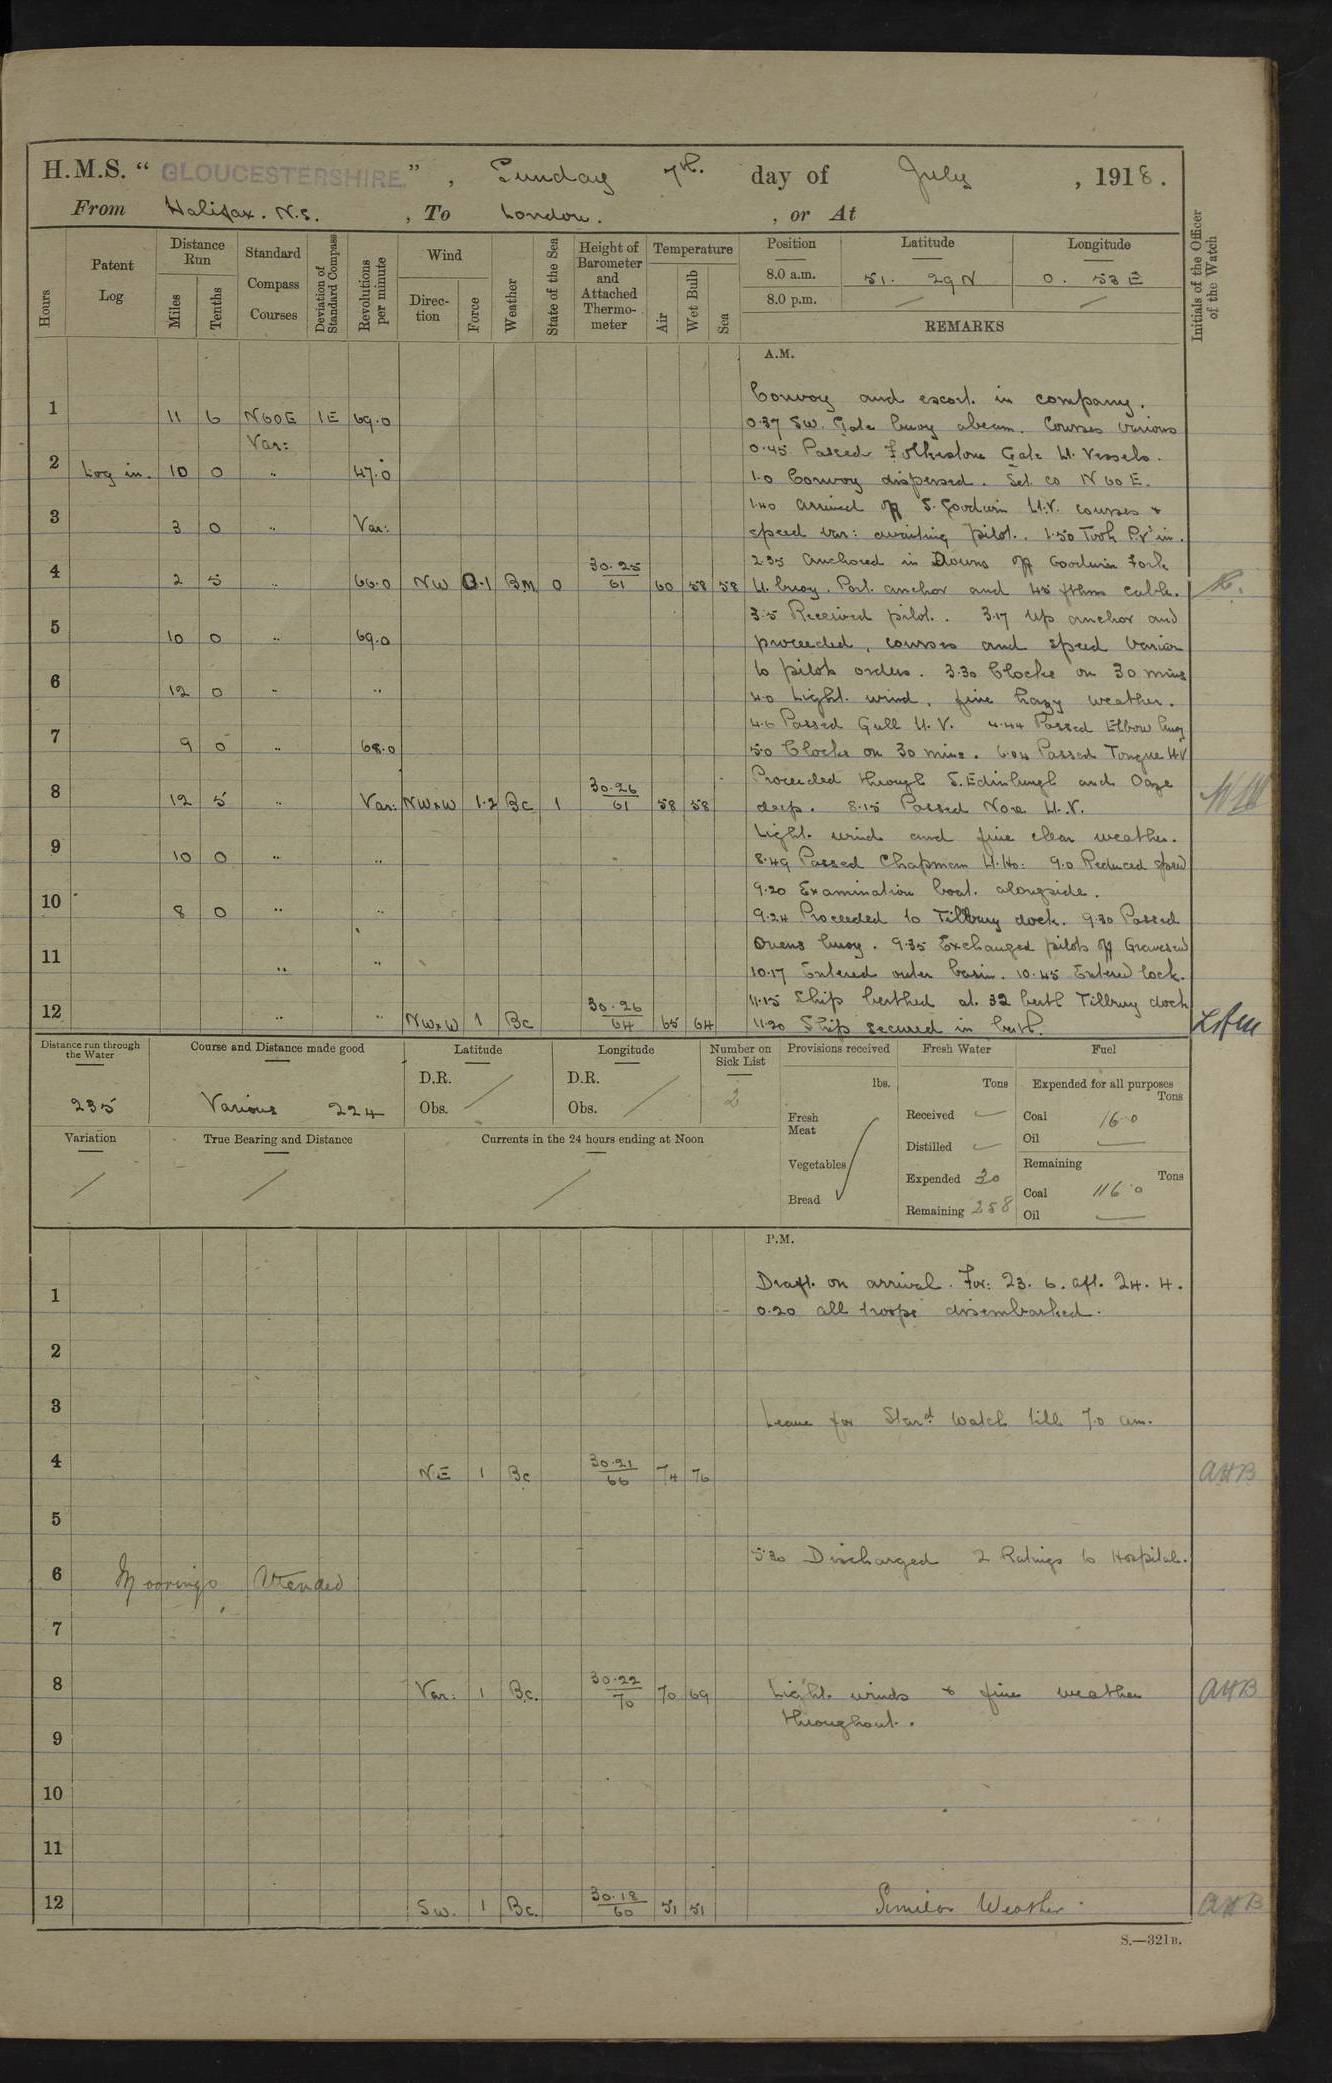 H.M.S. " GLOUCESTERSHIRE. " , Sunday 7th. day of July , 1918.
From Halifax. N.S. , To London. , or At
Hours
Patent Log
Distance Run
Miles
Tenths
Standard Compass Courses
Deviation of Standard Compass
Revolutions per minute
Wind
Direction
Force
Weather
State of the Sea
Height of Barometer and Attached Thermometer
Temperature
Air
Wet Bulb
Sea
Position Latitude Longitude
8.0 a.m. 51. 29 N 0. 53 E
8.0 p.m. / /
REMARKS
Initials of the Officer of the Watch
A.M.
Convoy and escort in company.
1 11 6 N60E 1E 69.0 0.37 SW. Gate buoy abeam. Courses various
Var: 0.45 Passed Folkestone Gate Lt. Vessels.
2 Log in. 10 0 " 47.0 1.0 Convoy dispersed. Set co N 60 E.
1.40 arrived off S. Goodwin Lt.V. courses &
3 3 0 " Var: speed var: awaiting pilot. 1.50 Took P.V's in.
2.35 anchored in Downs off Goodwin Fork
4 2 5 " 66.0 NW 0.1 BM 0 30.25/61 60 58 58 Lt. buoy. Port anchor and 45 fthms cable.
3.5 Received pilot. 3.17 Up anchor and
5 10 0 " 69.0 proceeded, courses and speed various
to pilots orders. 3.30 Clocks on 30 mins
6 12 0 " " 4.0 Light wind, fine hazy weather.
4.6 Passed Gull Lt. V. 4.44 Passed Elbow buoy
7 9 0 " 68.0 5.0 Clocks on 30 mins. 6.04 Passed Tongue Lt V
Proceeded through S. Edinburgh and Oaze
8 12 5 " Var: NWxW 1.2 Bc 1 30.26/61 58 58 deep. 8.15 Passed Nore Lt. V.
Light wind and fine clear weather.
9 10 0 " " 8.49 Passed Chapman Lt. Ho: 9.0 Reduced speed
9.20 Examination boat alongside.
10 8 0 " " 9.24 Proceeded to Tilbury dock. 9.30 Passed
Ovens buoy. 9.35 Exchanged pilots off Gravesend
11 " " 10.17 Entered outer basin. 10.45 Entered lock.
11.15 Ship berthed at 32 berth Tilbury dock
12 " " NWxW 1 Bc 30.26/64 65 64 11.20 Ship secured in berth.
Distance run through the Water
235
Course and Distance made good
Various 224
Latitude
D.R. /
Obs.
Longitude
D.R. /
Obs.
Number on Sick List
2
Provisions received
lbs.
Fresh Meat
Vegetables
Bread
Fresh Water
Tons
Received —
Distilled —
Expended 30
Remaining 258
Fuel
Expended for all purposes
Tons
Coal 16.0
Oil —
Remaining
Tons
Coal 116.0
Oil —
Variation
/
True Bearing and Distance
/
Currents in the 24 hours ending at Noon
/
P.M.
Draft on arrival. For: 23. 6. aft. 24. 4.
1 0.20 all troops disembarked.
2
3 Leave for Starд Watch till 7.0 am.
4 NE 1 Bc 30.21/66 74 76 AHB
5
5.30 Discharged 2 Ratings to Hospital.
6 Moorings Attended
7
8 Var: 1 Bc. 30.22/70 70 69 Light winds & fine weather AHB
throughout.
9
10
11
12 SW. 1 Bc. 30.18/60 51 51 Similar Weather AHB
S.—321B.